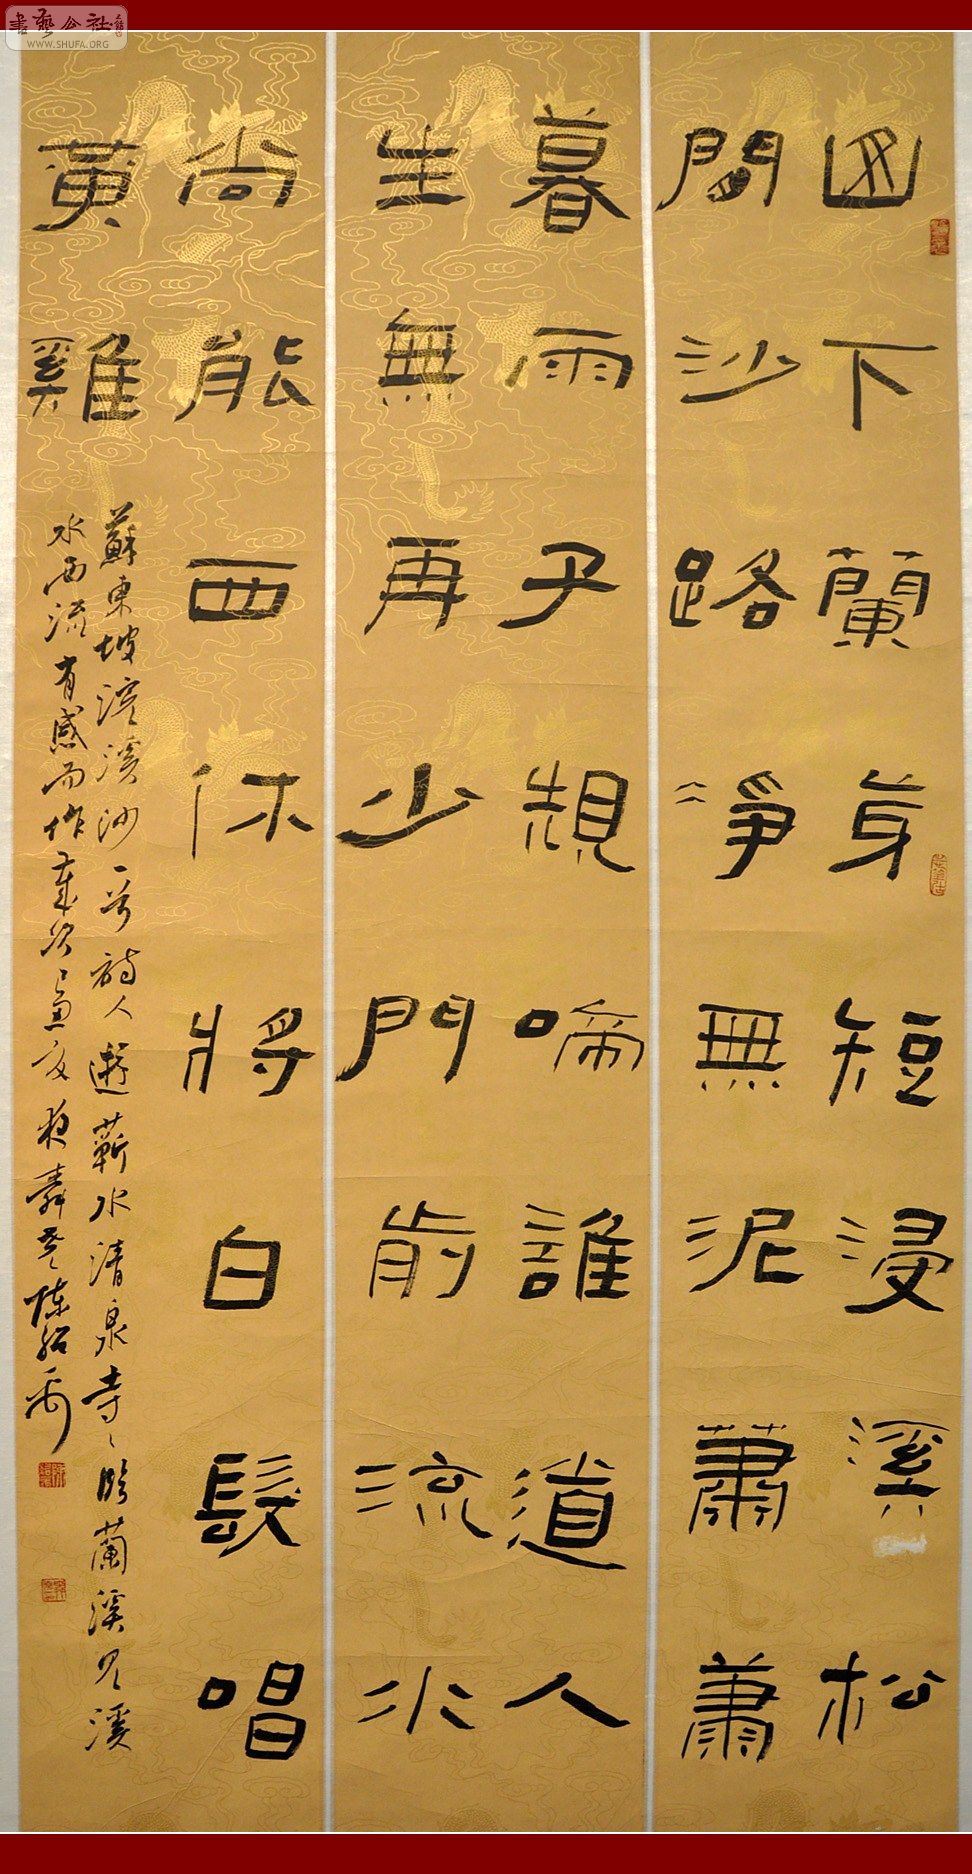 書藝公社
WWW.SHUFA.ORG
山下蘭芽短浸溪松
間沙路淨無泥蕭蕭
暮雨子規啼誰道人
生無再少門前流水
尚能西休將白髮唱
黃雞
蘇東坡浣溪沙一首詩人遊蘄水清泉寺〻臨蘭溪見溪
水西流有感而作歲次